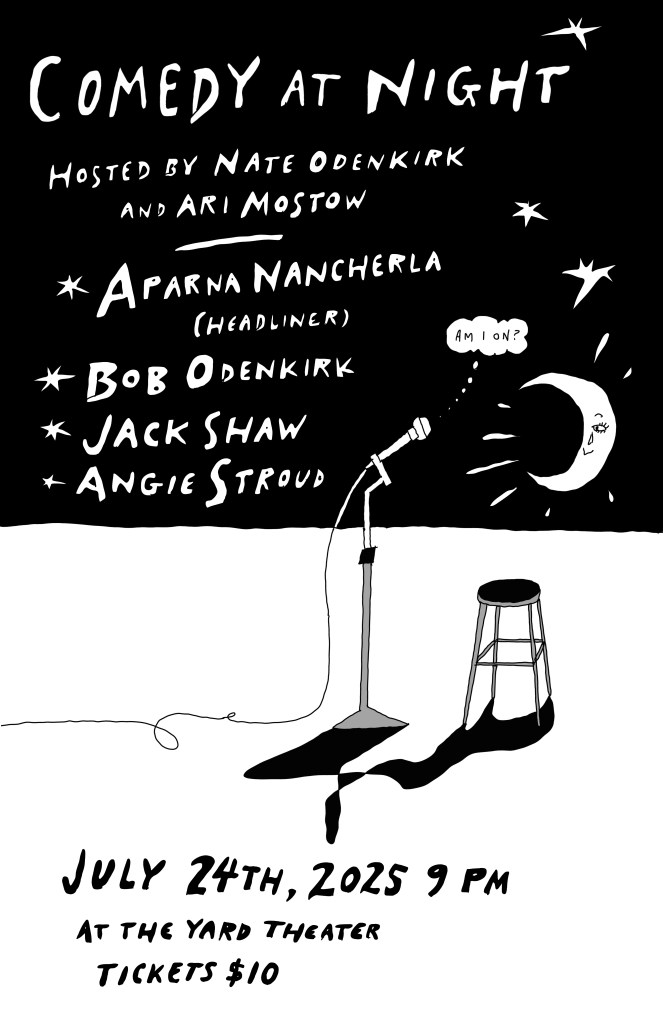 COMEDY AT NIGHT
HOSTED BY NATE ODENKIRK
AND ARI MOSTOW
APARNA NANCHERLA
(HEADLINER)
AM I ON?
BOB ODENKIRK
JACK SHAW
ANGIE STROUD
JULY 24TH, 2025 9 PM
AT THE YARD THEATER
TICKETS $10